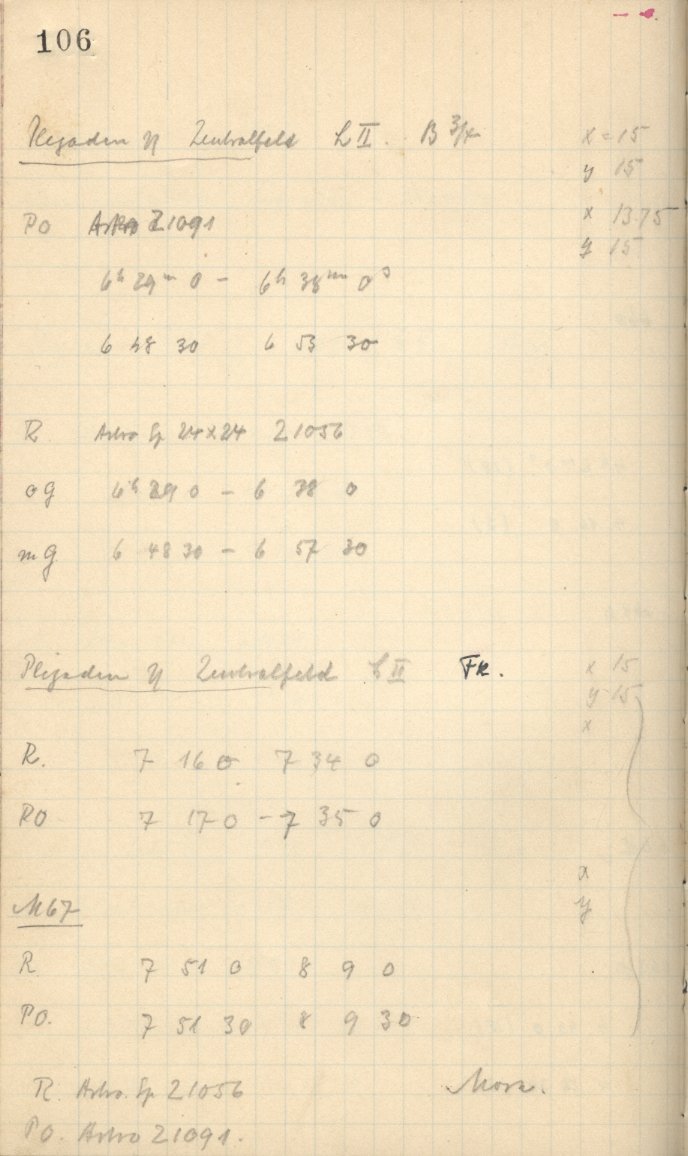 106
Plejaden η Zentralfeld L II. B 3/x x = 15
y 15
Po Astro Z1091 x 13.75
y 15
6h 29m 0 - 6h 38m 0s
6 48 30 6 53 30
R Astro Sp 24x24 Z1056
og 6h 29 0 - 6 38 0
mg 6 48 30 - 6 57 30
Plejaden η Zentralfeld L II FK. x 15
y 15
x
R. 7 16 0 7 34 0
PO 7 17 0 - 7 35 0
x
M67 y
R 7 51 0 8 9 0
PO. 7 51 30 8 9 30
R. Astro. Sp Z1056
PO. Astro Z1091.